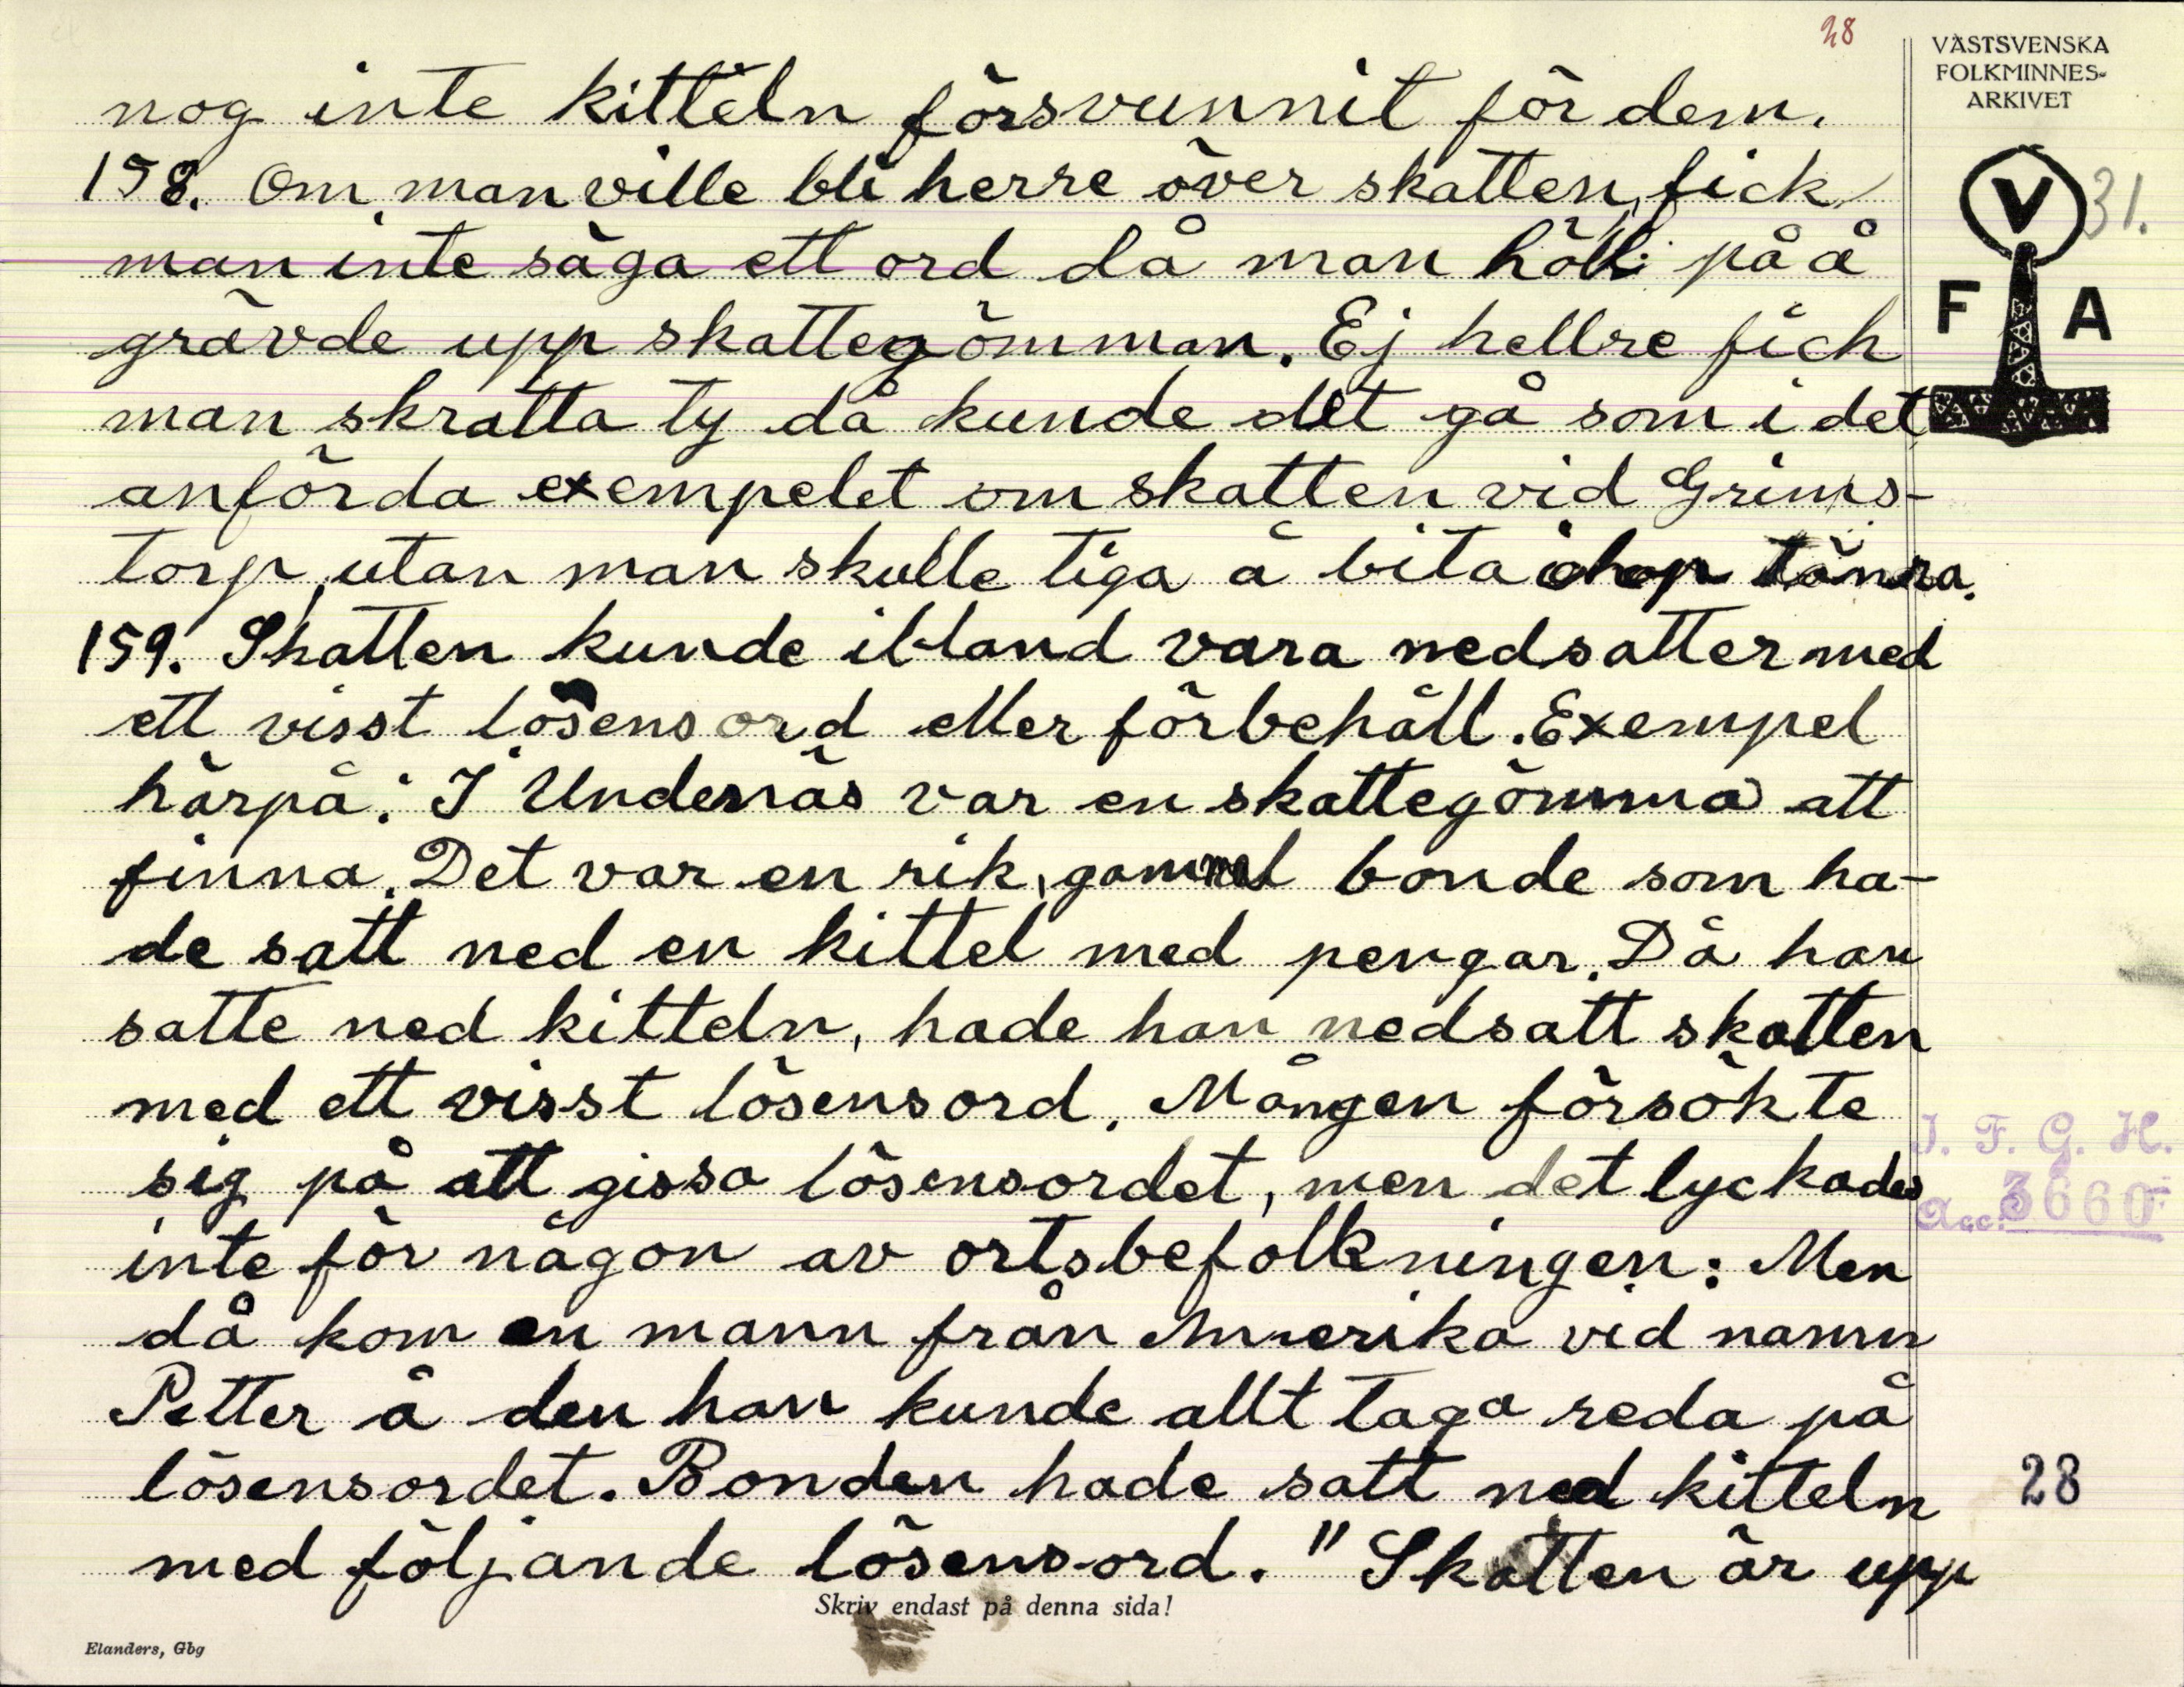 28
VÄSTSVENSKA
FOLKMINNES-
ARKIVET
V
F A
31.
nog inte kitteln försvunnit för dem.
158. Om man ville bli herre över skatten, fick
man inte säga ett ord då man höll på å
grävde upp skattegömman. Ej hellre fick
man skratta ty då kunde det gå som i det
anförda exempelet om skatten vid Grims-
torp, utan man skulle tiga å bita ihop tänra.
159. Skatten kunde ibland vara nedsatter med
ett visst lösensord eller förbehåll. Exempel
härpå: I Undenäs var en skattegömma att
finna. Det var en rik, gammal bonde som ha-
de satt ned en kittel med pengar. Då han
satte ned kitteln, hade han nedsatt skatten
med ett visst lösensord. Mången försökte
sig på att gissa lösensordet, men det lyckades
inte för någon av ortsbefolkningen: Men
då kom en mann från Amerika vid namn
Petter å den han kunde allt taga reda på
lösensordet. Bonden hade satt ned kitteln
med följande lösens-ord. "Skatten är upp
I. F. G. H.
Acc. 3660
28
Skriv endast på denna sida!
Elanders, Gbg